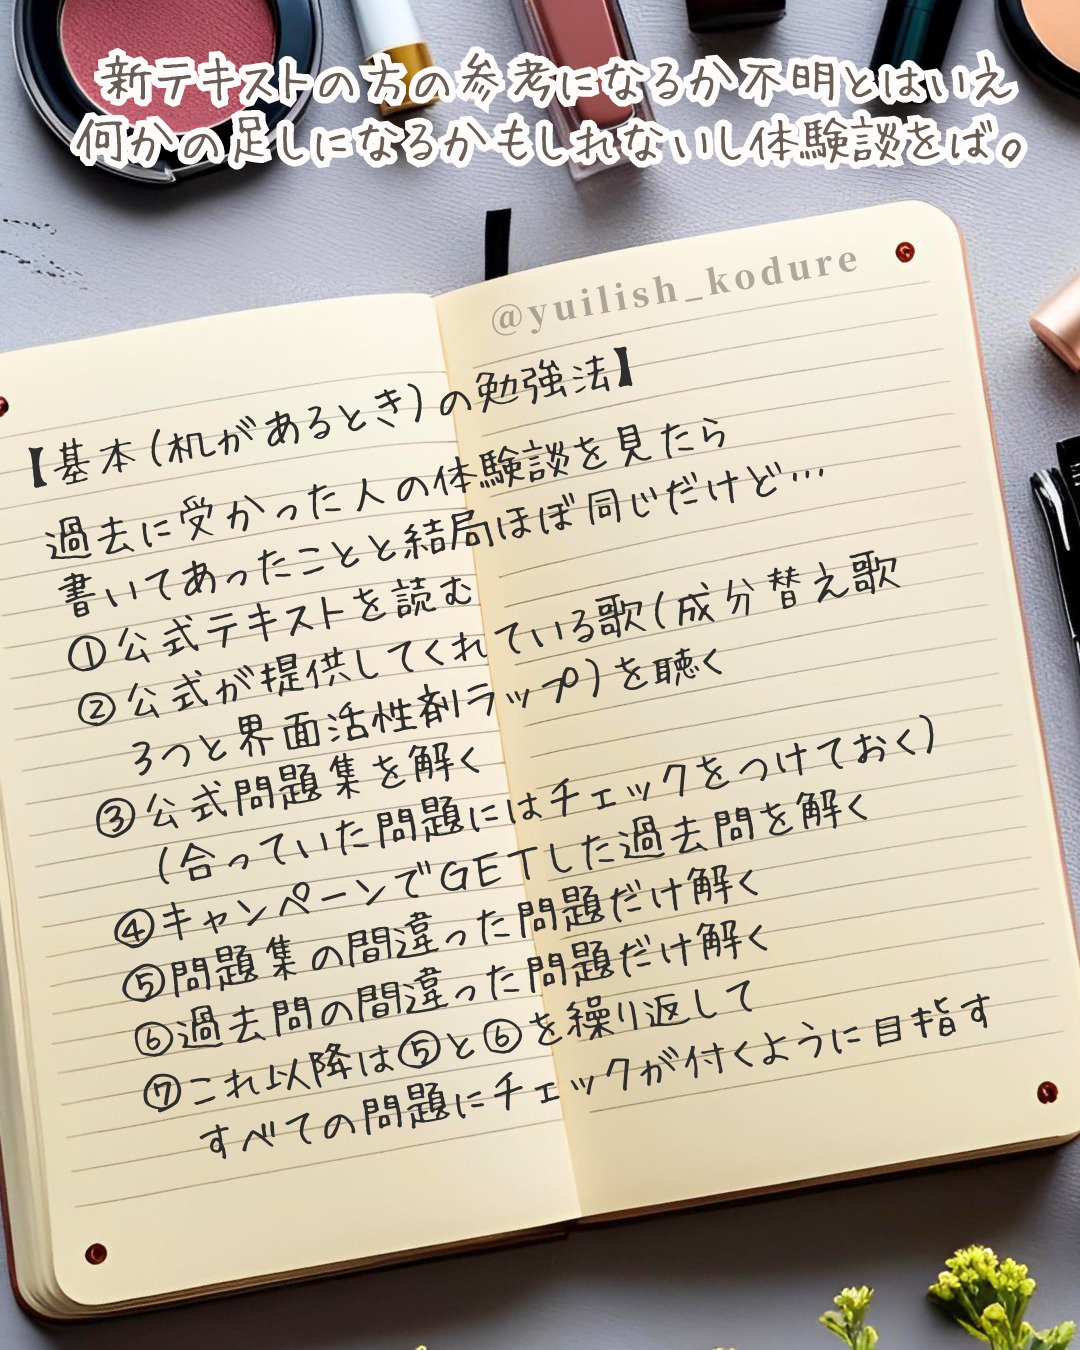 新テキストの方の参考になるか不明とはいえ
何かの足しになるかもしれないし体験談をば。
@yuilish_kodure
【基本(机があるとき)の勉強法】
過去に受かった人の体験談を見たら
書いてあったことと結局ほぼ同じだけど…
①公式テキストを読む
②公式が提供してくれている歌(成分替え歌
3つと界面活性剤ラップ)を聴く
③公式問題集を解く
(合っていた問題にはチェックをつけておく)
④キャンペーンでGETした過去問を解く
⑤問題集の間違った問題だけ解く
⑥過去問の間違った問題だけ解く
⑦これ以降は⑤と⑥を繰り返して
すべての問題にチェックが付くように目指す